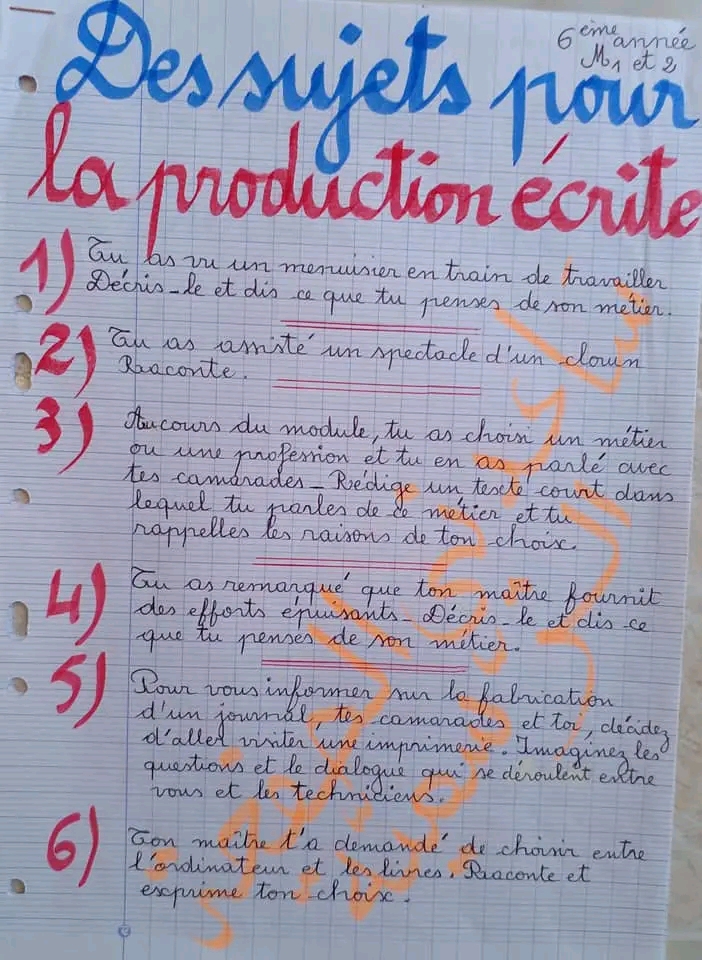 6ème année
M1 et 2
Des sujets pour
la production écrite
1) Tu as vu un menuisier en train de travailler
Décris-le et dis ce que tu penses de son métier.
2) Tu as assisté un spectacle d'un clown
Raconte.
3) Au cours du module, tu as choisi un métier
ou une profession et tu en as parlé avec
tes camarades - Rédige un texte court dans
lequel tu parles de ce métier et tu
rappelles les raisons de ton choix.
4) Tu as remarqué que ton maître fournit
des efforts épuisants - Décris-le et dis ce
que tu penses de son métier.
5) Pour vous informer sur la fabrication
d'un journal, tes camarades et toi, décidez
d'aller visiter une imprimerie. Imaginez les
questions et le dialogue qui se déroulent entre
vous et les techniciens.
6) Ton maître t'a demandé de choisir entre
l'ordinateur et les livres. Raconte et
exprime ton choix.